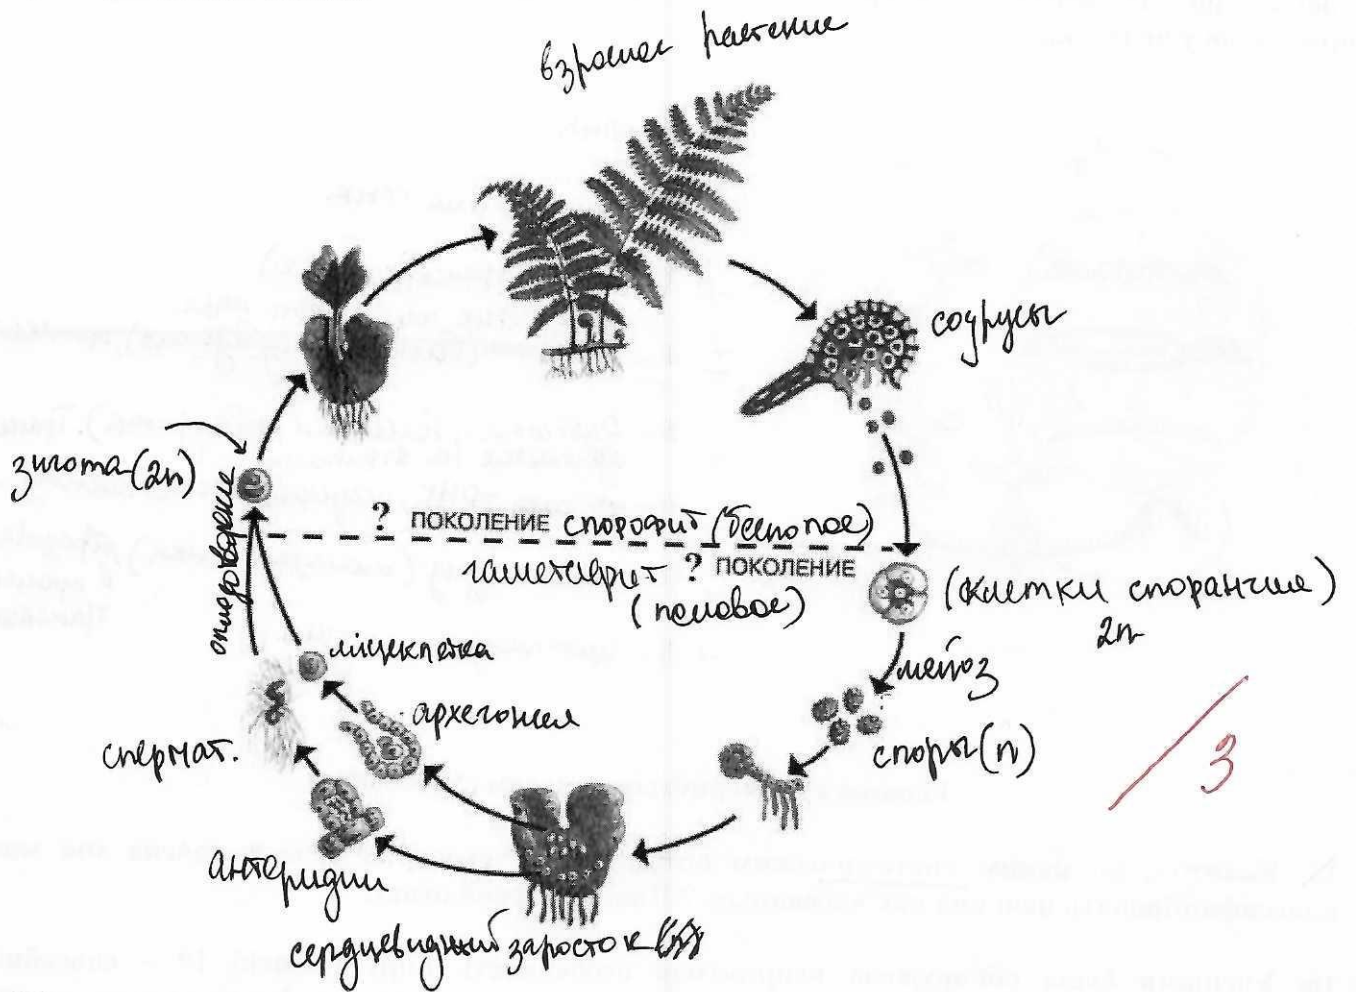 взрослое растение
соурусы
зигота (2n)
оплодотворение
? ПОКОЛЕНИЕ спорофит (бесполое)
гаметофит ? ПОКОЛЕНИЕ
(половое)
(клетки спорангия)
2n
мейоз
споры (n)
яйцеклетка
архегония
спермат.
антеридии
сердцевидный заросток
/3